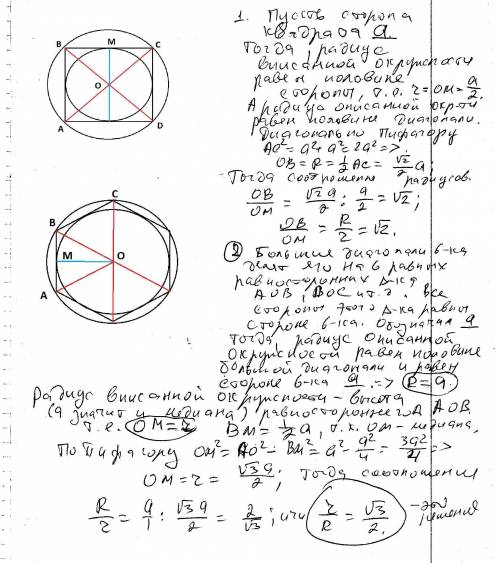 B M C
O
A D
1. Пусть сторона
квадрата a.
Тогда, радиус
вписанной окружности
равен половине
стороны, т.е. r = OM = a/2.
А радиус описанной окр-ти
равен половине диагонали.
Диагональ по Пифагору
AC² = a² + a² = 2a² =>.
OB = R = 1/2 AC = √2/2 a;
Тогда соотношение радиусов.
OB/OM = √2a/2 : a/2 = √2;
OB/OM = R/2 = √2.
C
B
M O
A
2 Большие диагонали 6-ка
делят его на 6 равных
равносторонних Δ-ка
AOB, BOC и т.д. Все
стороны этого Δ-ка равны
стороне 6-ка. Обозначим a
Тогда, радиус описанной
окружности равен половине
большой диагонали и равен
стороне 6-ка a => R = a.
Радиус вписанной окружности - высота
(а значит и медиана) равностороннего Δ AOB.
т.е. OM = r BM = 1/2 a, т.к. OM - медиана.
По Пифагору OM² = AO² - BM² = a² - a²/4 = 3a²/4 =>
OM = r = √3a/2; Тогда соотношения
R/r = a/1 : √3a/2 = 2/√3; или r/R = √3/2. - это решение